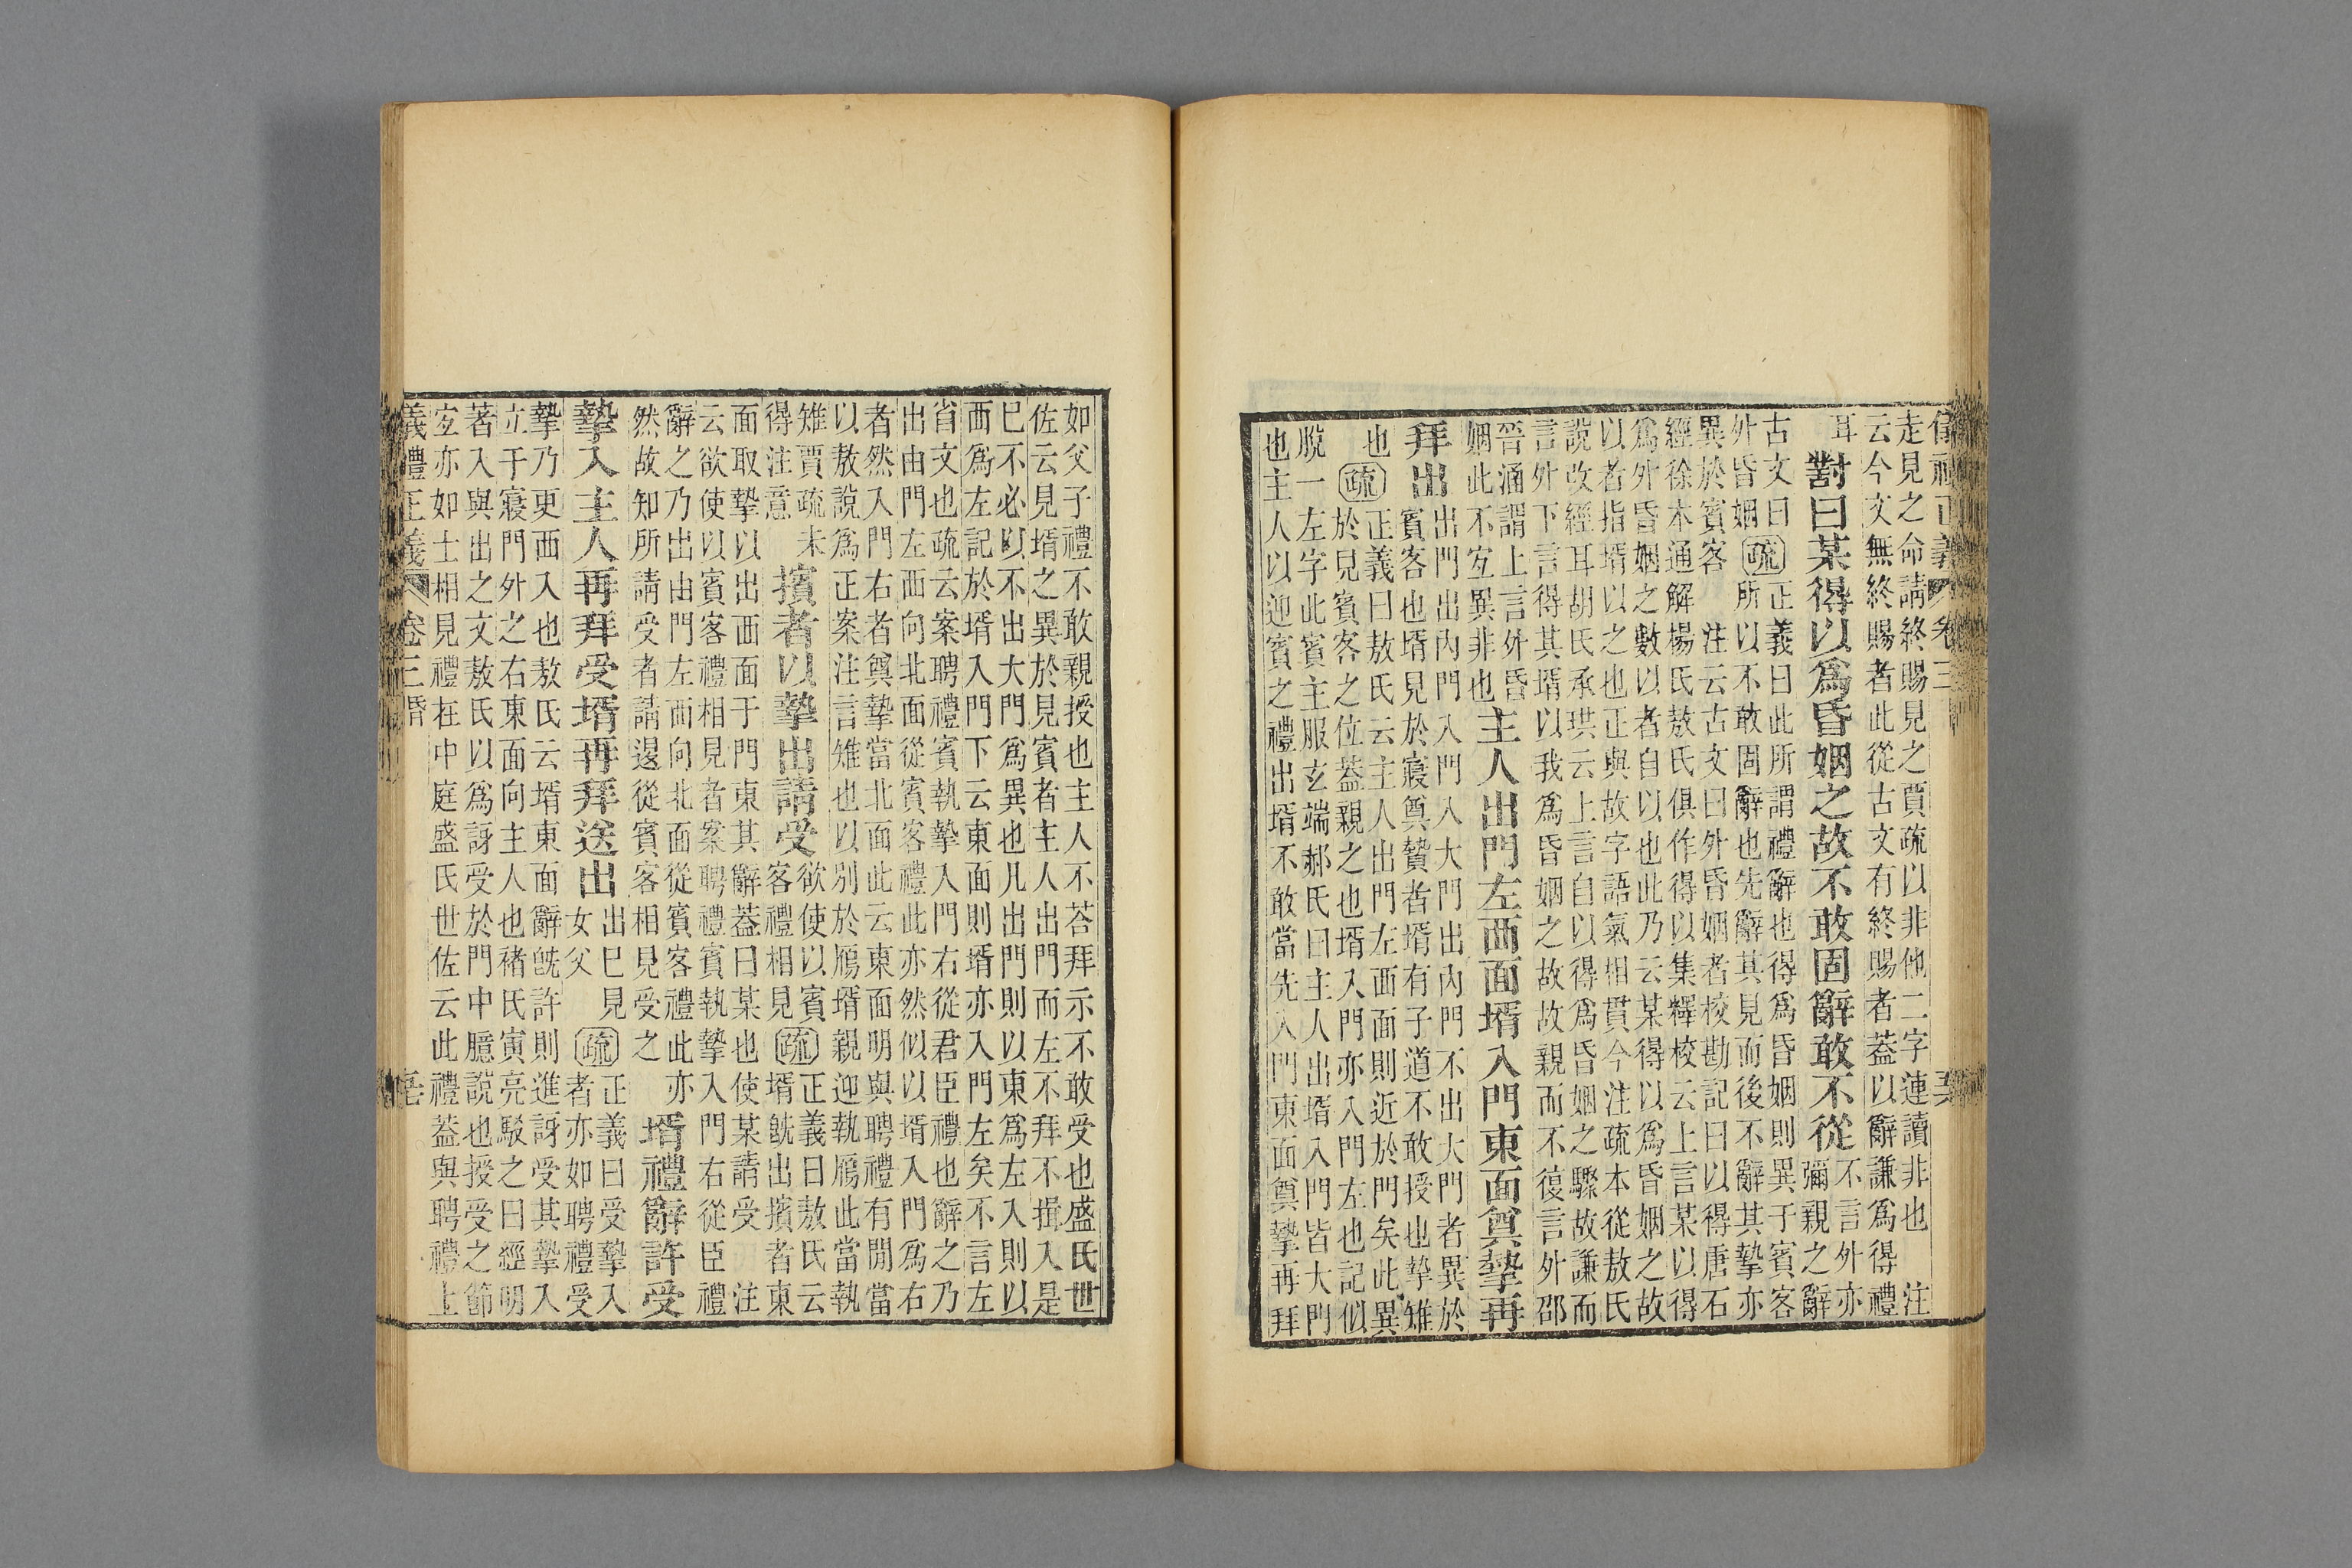 儀禮正義 卷三
走見之命請終賜見之賈疏以非他二字連讀非也 注
云今文無終賜者此從古文有終賜者蓋以辭謙爲得禮
耳 對曰某得以爲昏姻之故不敢固辭敢不從
不言外亦
彌親之辭
古文曰
外昏姻
疏
正義曰此所謂禮辭也得爲昏姻則異于賓客
所以不敢固辭也先辭其見而後不辭其摯亦
異於賓客 注云古文曰外昏姻者校勘記曰以得唐石
經徐本通解楊氏敖氏俱作得以集釋校云上言某以得
爲外昏姻之數以者自以也此乃云某得以爲昏姻之故
以者指壻以之也正與故字語氣相貫今注疏本從敖氏
說改經耳胡氏承珙云上言自以得爲昏姻之驟故謙而
言外下言得其壻以我爲昏姻之故故親而不復言外邵
晉涵謂上言外昏
姻此不宐異非也
主人出門左西面壻入門東面奠摯再
拜出
出門出內門入門入大門出內門不出大門者異於
賓客也壻見於寢奠贄者壻有子道不敢授也摯雉
也
疏
正義曰敖氏云主人出門左西面則近於門矣此異
於見賓客之位蓋親之也壻入門亦入門左也記似
脫一左字此賓主服玄端郝氏曰主人出壻入門皆大門
也主人以迎賓之禮出壻不敢當先入門東面奠摯再拜
如父子禮不敢親授也主人不荅拜示不敢受也盛氏世
佐云見壻之異於見賓者主人出門而左不拜不揖入是
巳不必以不出大門爲異也凡出門則以東爲左入則以
西爲左記於壻入門下云東面則壻亦入門左矣不言左
省文也疏云案聘禮賓執摯入門右從君臣禮也辭之乃
出由門左西向北面從賓客禮此亦然似以壻入門爲右
者然入門右者奠摯當北面此云東面明與聘禮有閒當
以敖說爲正案注言雉也以別於鴈壻親迎執鴈此當執
雉賈疏未
得注意
擯者以摯出請受
欲使以賓
客禮相見
疏
正義曰敖氏云
壻旣出擯者東
面取摯以出西面于門東其辭蓋曰某也使某請受 注
云欲使以賓客禮相見者案聘禮賓執摯入門右從臣禮
辭之乃出由門左西向北面從賓客禮此亦
然故知所請受者請退從賓客相見受之
壻禮辭許受
摯入主人再拜受壻再拜送出
出巳見
女父
疏
正義曰受摯入
者亦如聘禮受
摯乃更西入也敖氏云壻東面辭旣許則進訝受其摯入
立于寢門外之右東面向主人也褚氏寅亮駁之曰經明
著入與出之文敖氏以爲訝受於門中臆說也授受之節
宐亦如士相見禮在中庭盛氏世佐云此禮蓋與聘禮上
義禮正義 卷三昏